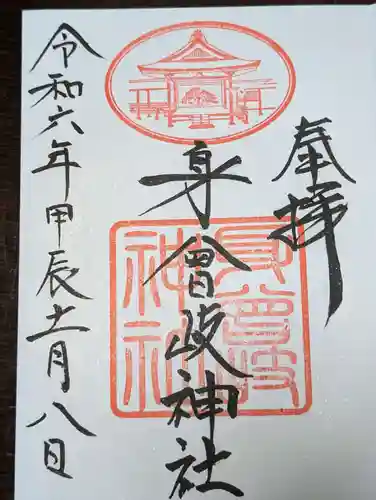 奉拝
身曾岐神社
令和六年甲辰十一月八日
身曾岐
神社